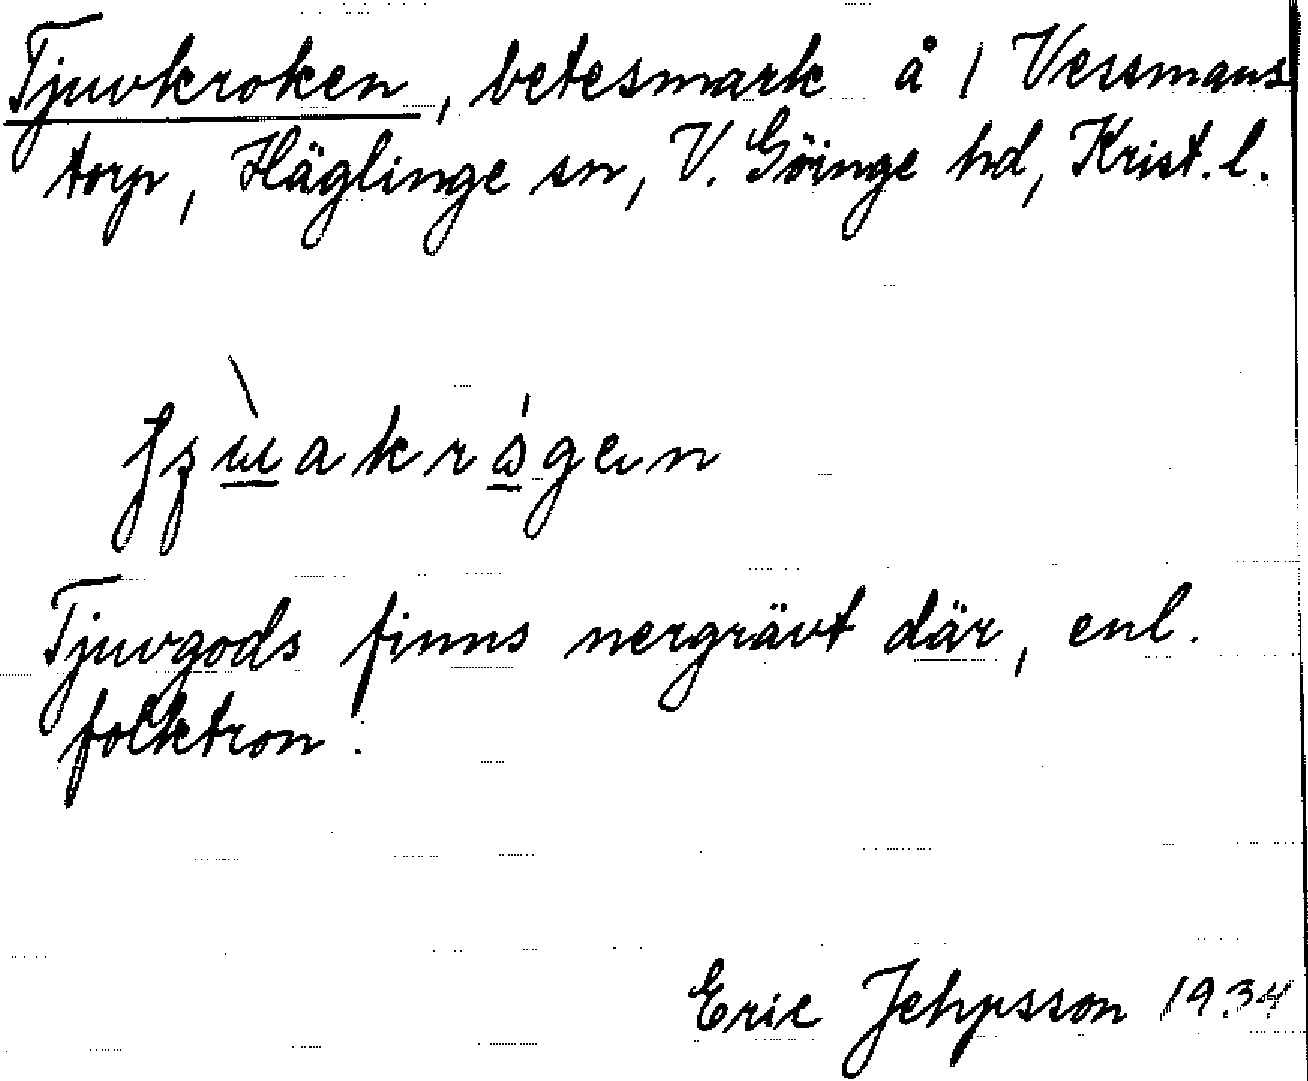 Tjuvkroken, betesmark å 1 Vessmans
torp, Häglinge sn, V. Göinge hd, Krist. l.
Tjuvgods finns nergrävt där, enl.
folktron.
Eric Jehpsson 1934